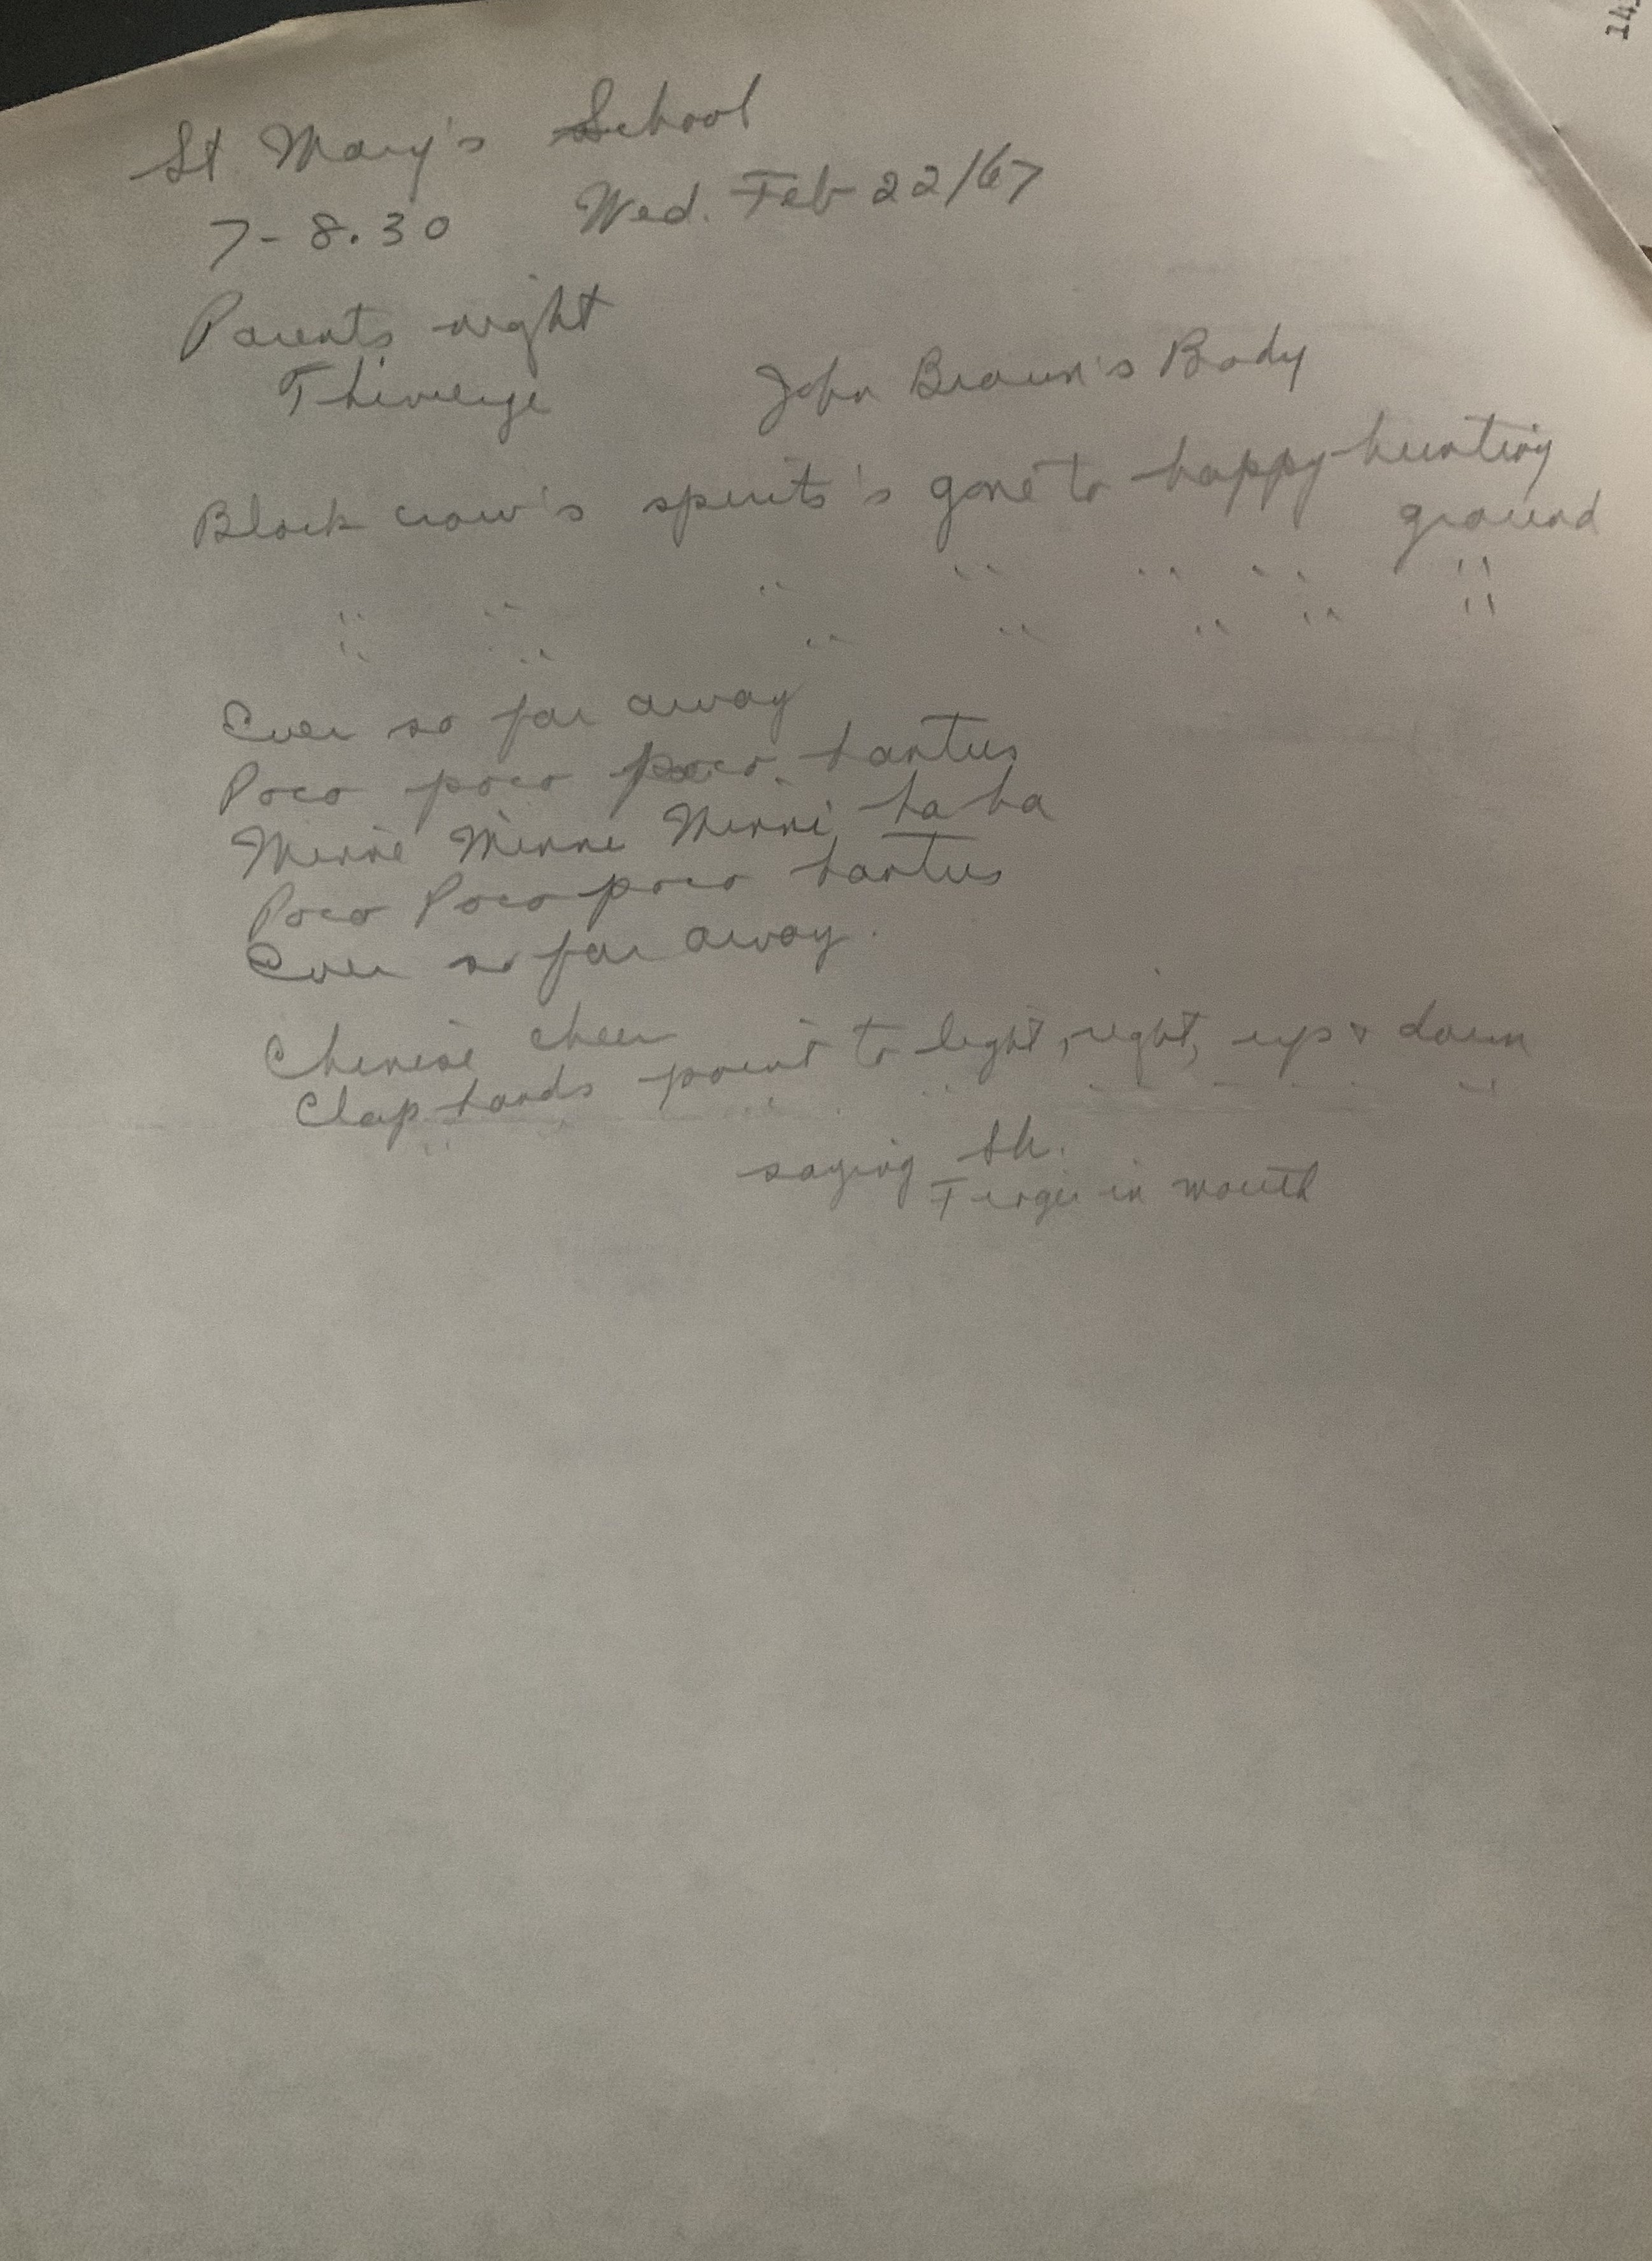 St Mary's School
7-8.30 Wed. Feb 22/67
Parents night
John Brown's Body
Black crow's spirits's gone to happy hunting
ground
" " " " " " "
" " " " " " "
Ever so far away
Poco poco poco hantus
Minne Minne Minni ha ha
Poco Poco poco hantus
Ever so far away.
Chinese cheer
Clap hands point to light, right, up & down
" " " " " "
saying Sh.
Finger in mouth
14